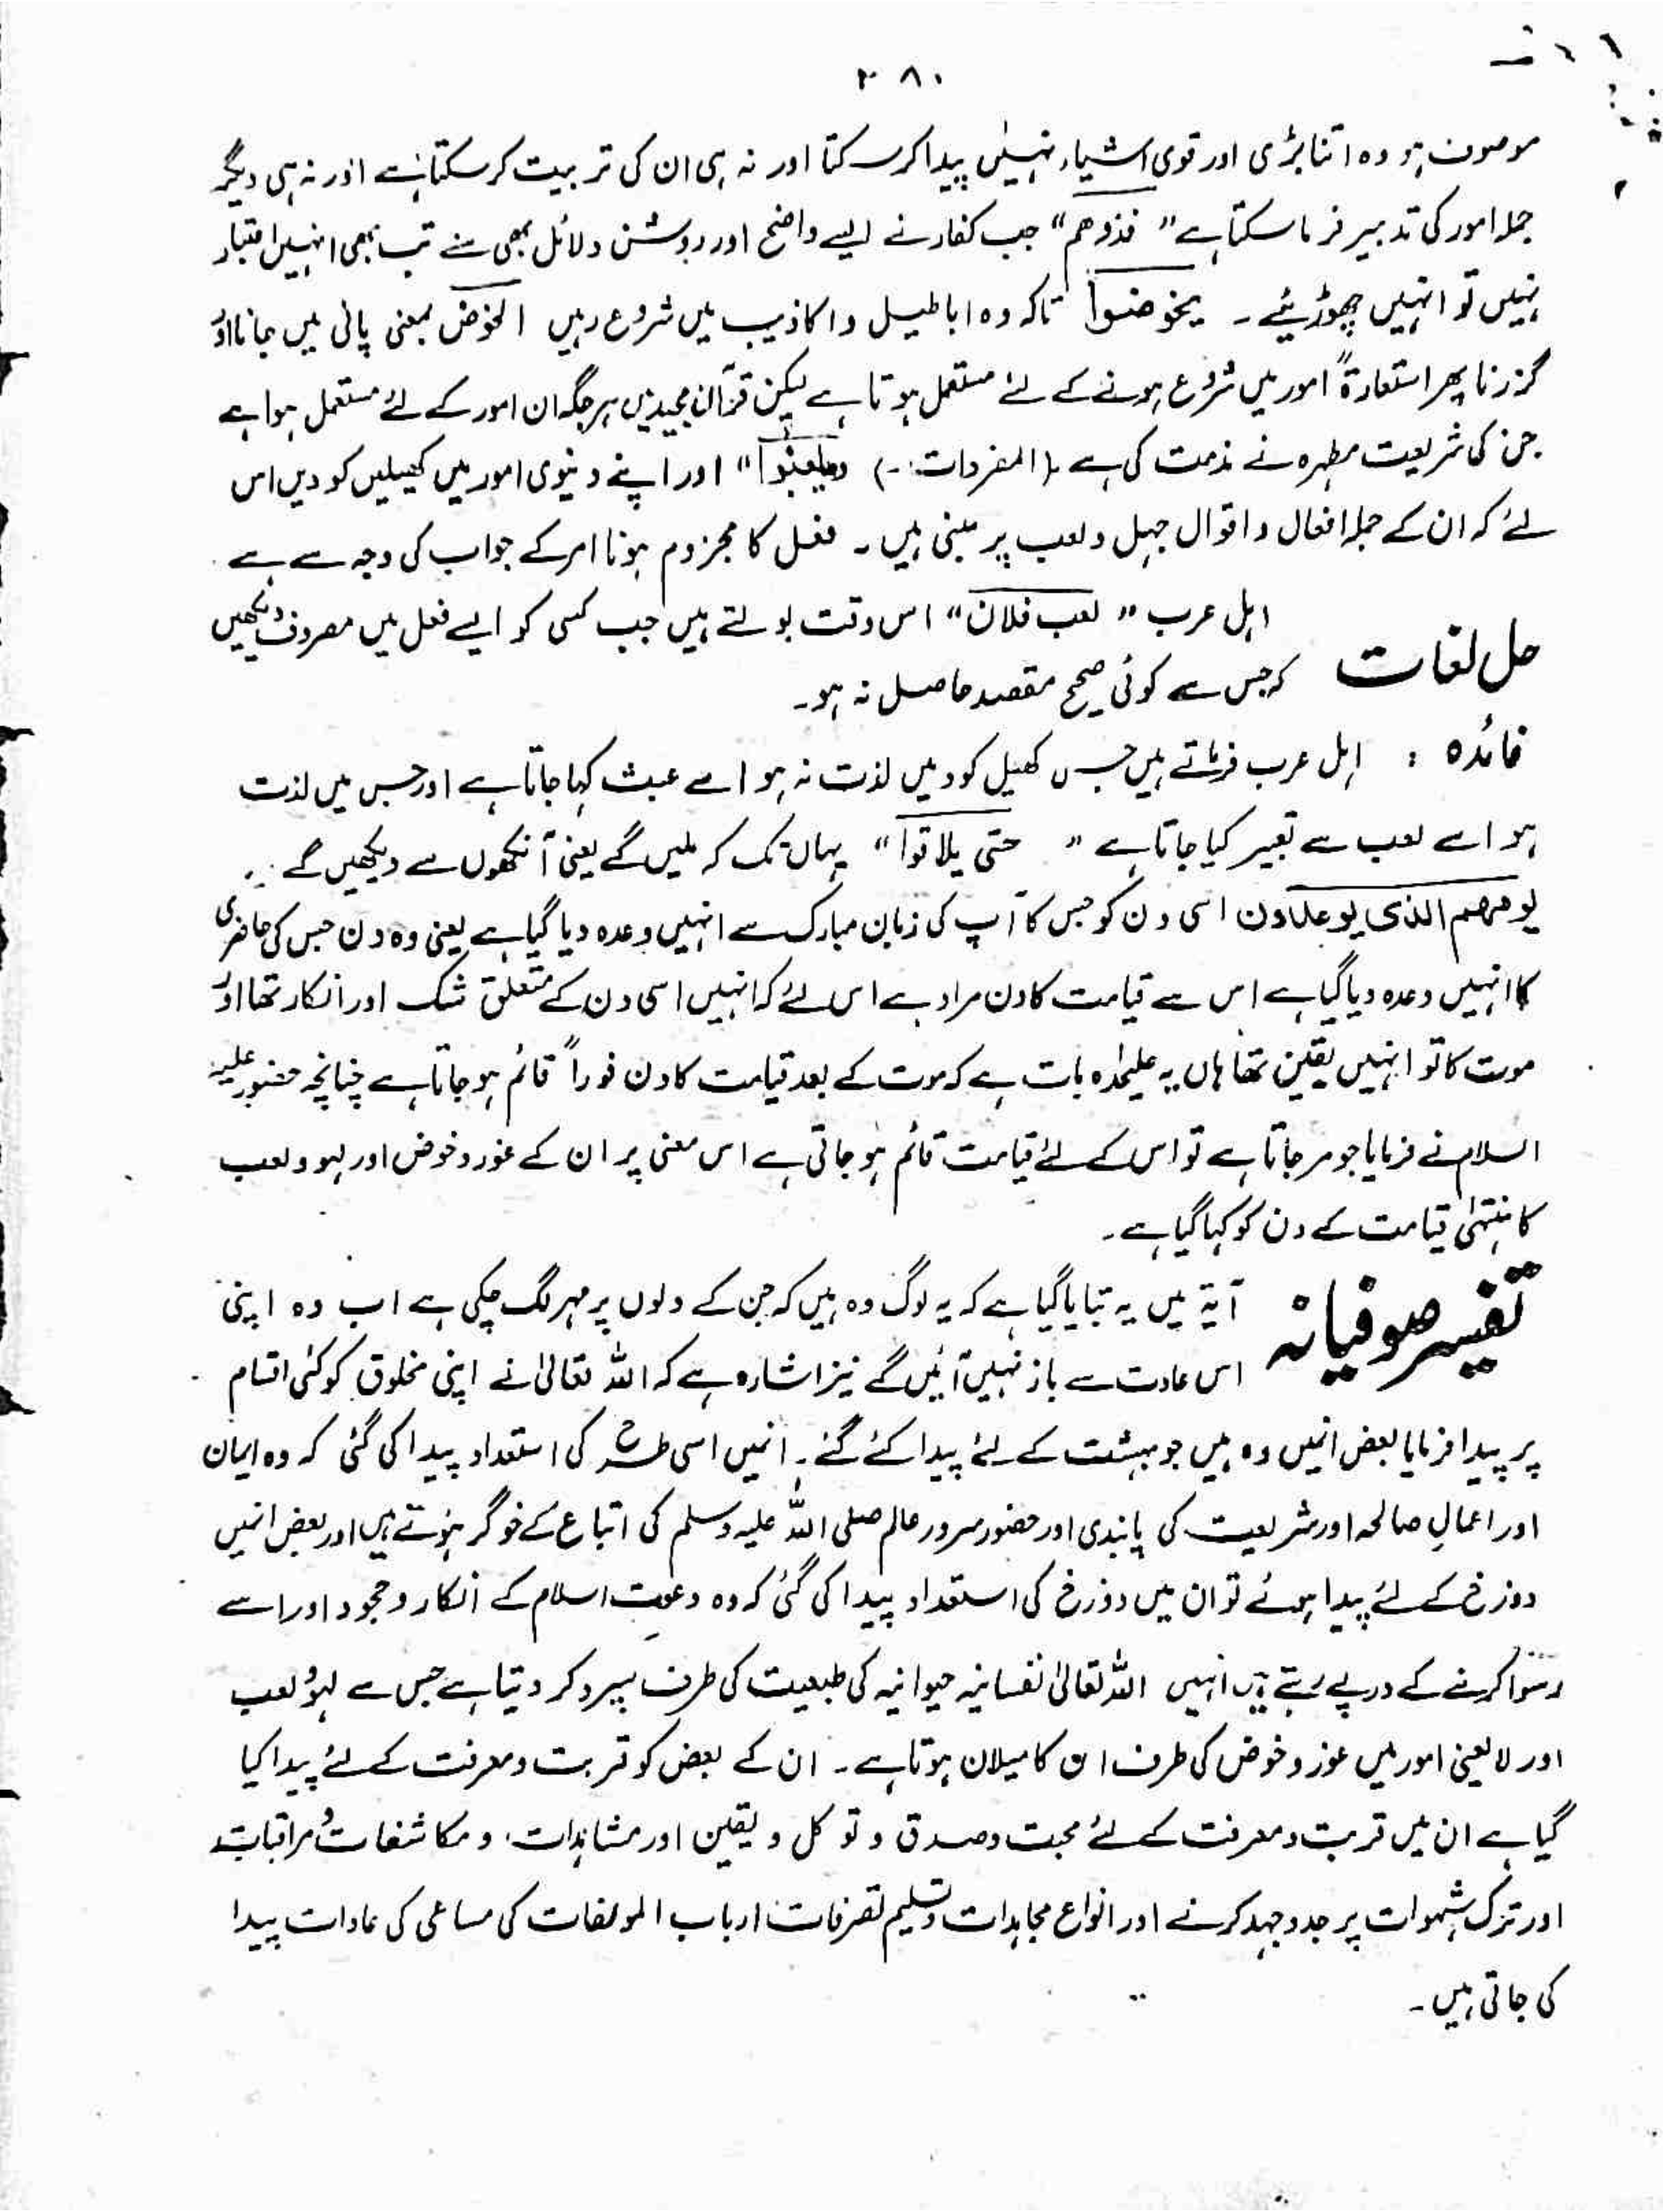 ۲۸۰
موصوف ہو وہ اتنا بڑی اور قوی اشیاء نہیں پیدا کر سکتا اور نہ ہی ان کی تربیت کر سکتا ہے اور نہ ہی دیگر
جملہ امور کی تدبیر فرما سکتا ہے " فذرھم " جب کفار نے ایسے واضح اور روشن دلائل بھی سنے تب بھی انہیں اعتبار
نہیں تو انہیں چھوڑیئے ۔ یخوضوا تاکہ وہ اباطیل و اکاذیب میں شروع رہیں الخوض بمعنی پانی میں جانا اور
گزرنا پھر استعارۃً امور میں شروع ہونے کے لئے مستعمل ہوتا ہے لیکن قرآن مجید میں ہر جگہ ان امور کے لئے مستعمل ہوا ہے
جن کی شریعت مطہرہ نے مذمت کی ہے ۔ (المفردات ۔) ویلعبوا " اور اپنے دنیوی امور میں کھیلیں کو دیں اس
لئے کہ ان کے جملہ افعال و اقوال جہل و لعب پر مبنی ہیں ۔ فعل کا مجزوم ہونا امر کے جواب کی وجہ سے ہے ۔
حل لغات
اہل عرب " لعب فلان " اس وقت بولتے ہیں جب کسی کو ایسے فعل میں مصروف دیکھیں
کہ جس سے کوئی صحیح مقصد حاصل نہ ہو۔
فائدہ : اہل عرب فرماتے ہیں جس کھیل کود میں لذت نہ ہو اسے عبث کہا جاتا ہے اور جس میں لذت
ہو اسے لعب سے تعبیر کیا جاتا ہے " حتی یلاقوا " یہاں تک کہ ملیں گے یعنی آنکھوں سے دیکھیں گے ۔
یومھم الذی یوعدون اسی دن کو جس کا آپ کی زبان مبارک سے انہیں وعدہ دیا گیا ہے یعنی وہ دن جس کی حاضری
کا انہیں وعدہ دیا گیا ہے اس سے قیامت کا دن مراد ہے اس لئے کہ انہیں اسی دن کے متعلق شک اور انکار تھا اور
موت کا تو انہیں یقین تھا ہاں یہ علیحدہ بات ہے کہ موت کے بعد قیامت کا دن فوراً قائم ہو جاتا ہے چنانچہ حضور علیہ
السلام نے فرمایا جو مر جاتا ہے تو اس کے لئے قیامت قائم ہو جاتی ہے اس معنی پر ان کے غور و خوض اور لہو و لعب
کا منتہیٰ قیامت کے دن کو کہا گیا ہے ۔
تفسیر صوفیانہ
آیۃ میں یہ بتایا گیا ہے کہ یہ لوگ وہ ہیں کہ جن کے دلوں پر مہر لگ چکی ہے اب وہ اپنی
اس عادت سے باز نہیں آئیں گے نیز اشارہ ہے کہ اللہ تعالیٰ نے اپنی مخلوق کو کئی اقسام
پر پیدا فرمایا بعض انمیں وہ ہیں جو بہشت کے لئے پیدا کئے گئے ۔ انمیں اسی طرح کی استعداد پیدا کی گئی کہ وہ ایمان
اور اعمالِ صالحہ اور شریعت کی پابندی اور حضور سرور عالم صلی اللہ علیہ وسلم کی اتباع کے خوگر ہوتے ہیں اور بعض انمیں
دوزخ کے لئے پیدا ہوئے تو ان میں دوزخ کی استعداد پیدا کی گئی کہ وہ دعوت اسلام کے انکار و جحود اور اسے
رسوا کرنے کے درپے رہتے ہیں انہیں اللہ تعالیٰ نفسانیہ حیوانیہ کی طبعیت کی طرف سپرد کر دیتا ہے جس سے لہو و لعب
اور لایعنی امور میں غور و خوض کی طرف ان کا میلان ہوتا ہے ۔ ان کے بعض کو قربت و معرفت کے لئے پیدا کیا
گیا ہے ان میں قربت و معرفت کے لئے محبت و صدق و توکل و یقین اور مشاہدات و مکاشفات و مراقبات
اور ترک شہوات پر جدوجہد کرنے اور انواع مجاہدات و تسلیم تصرفات ارباب المولفات کی مساعی کی عادات پیدا
کی جاتی ہیں ۔